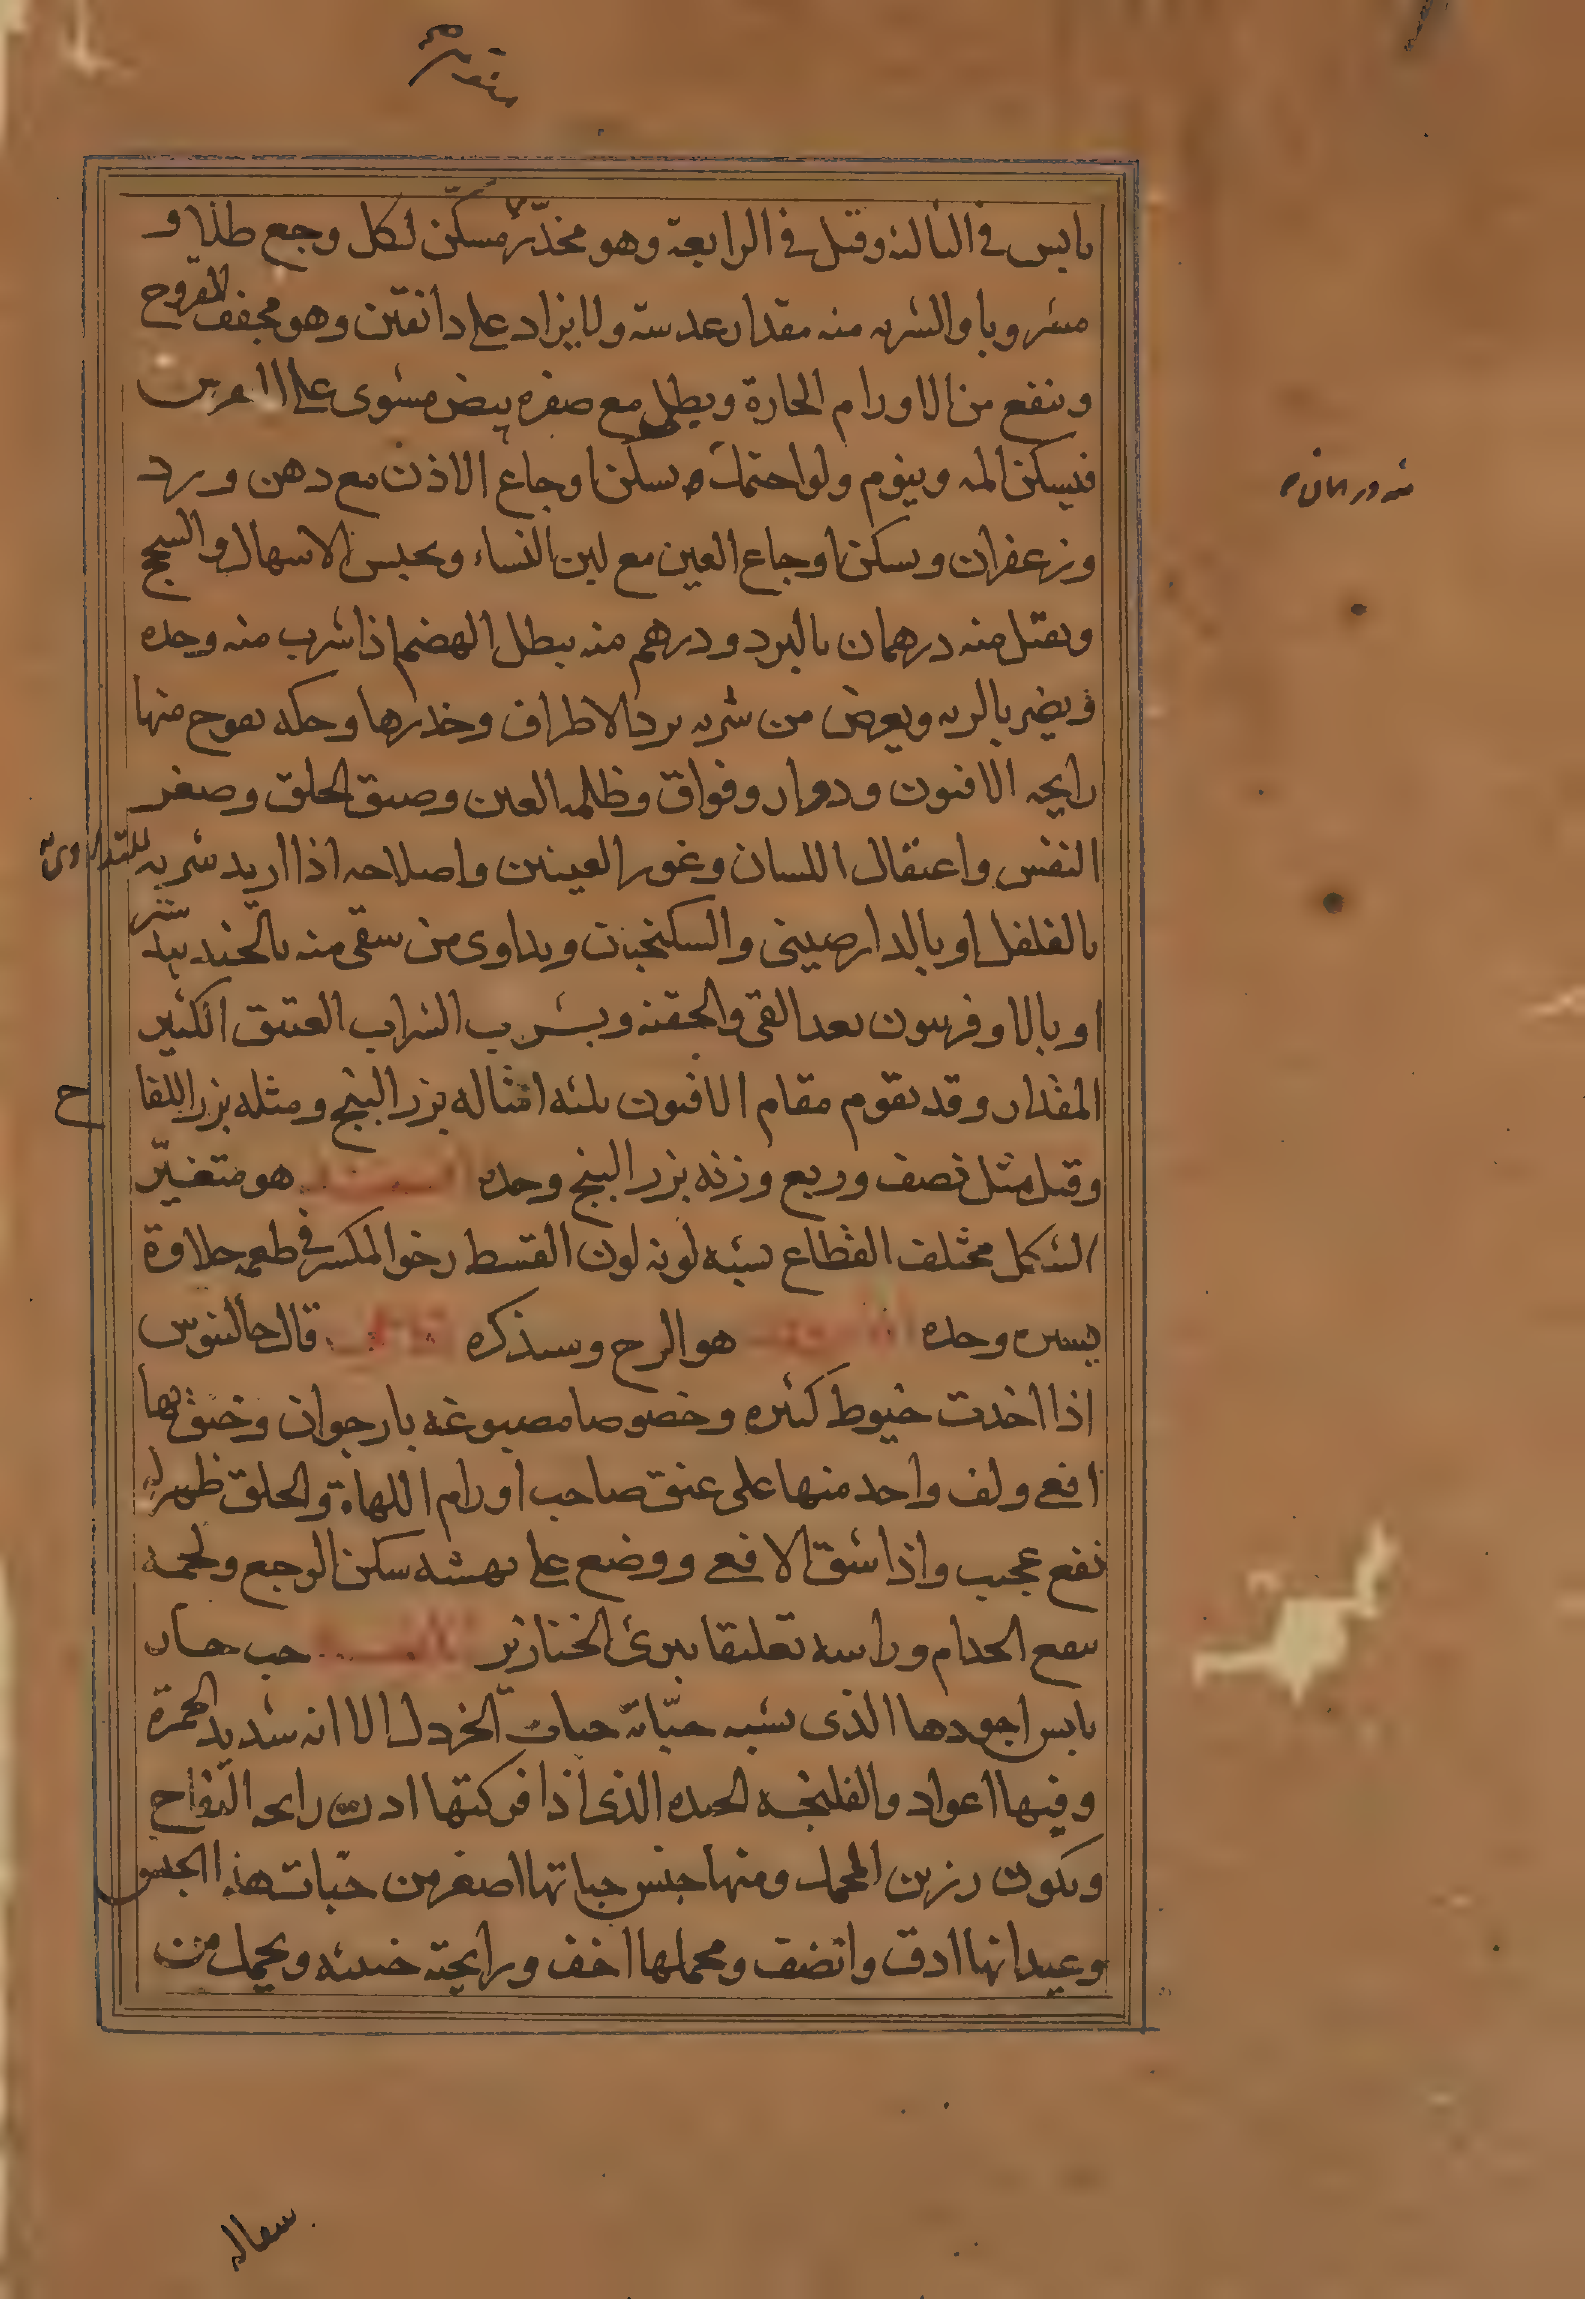 يابس فى الثالثة وقيل فى الرابعة وهو مخدّر مسكّن لكل وجع طلاا و
مشروبا والشربه منه مقدار عدسة ولا يزاد على دانقين وهو مجفف للقروح
وينفع من الاورام الحارة ويطلى مع صفره بيض مشوى على
فيسكن المه وينوم ولو احتمالا ويسكن اوجاع الاذن مع دهن ورد
وزعفران ويسكن اوجاع العين مع لبن النساء ويحبس الاسهال والسحج
ويقتل منه درهمان بالبرد ودرهم منه يبطل الهضم اذا شرب منه وحده
ويضر بالريه ويعرض من شربه برد الاطراف وخدرها وحكه يفوح منها
رايحه الافيون ودوار وفواق وظلمه العين وضيق الحلق وصغر
النفس واعتقال اللسان وغور العينين واصلاحه اذا اريد شربه للتداوى
بالفلفل او بالدارصينى والسكنجبين ويداوى من سقى منه بالجندبيدستر
او بالاوفربيون بعد القى والحقنه ويشرب الشراب العتيق الكثير
المقدار وقد يقوم مقام الافيون ثلثه امثاله بزر البنج ومثله بزر اللفا
ح
وقيل مثل نصف وربع وزنه بزر البنج وحده هو متغيّر
الشكل مختلف القطاع يشبه لونه لون القسط رخو المكسر فى طعمه حلاوة
يسيره وحده هو الرح وسنذكره قال جالينوس
اذا اخذت خيوط كثيره وخصوصا مصبوغه بارجوان وخنق بها
افعى ولف واحد منها على عنق صاحب اورام اللهاة والحلق ظهر له
نفع عجيب واذا شق الافعى ووضع على نهشه سكن الوجع ولحمه
ينفع الجذام وراسه تعليقا يبرئ الخنازير حب حار
يابس اجودها الذى يشبه حبّاته حبات الخردل الا انه شديد الحمرة
وفيها اعواد والفلنجه الجيده الذى اذا فركتها ادت رايحه التفاح
ويكون رزين المحمل ومنها جنس حباتها اصغر من حبات هذا الجنس
وعيدانها ادق وانضف ومحملها اخف ورايحته خبيثه ويحمل من